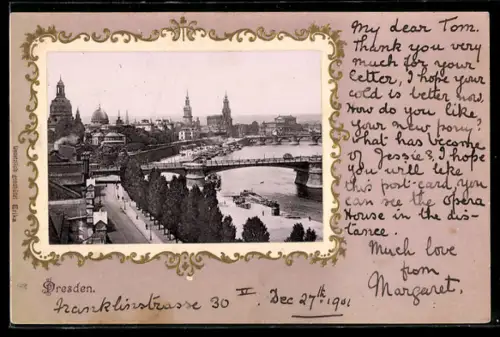 My dear Tom.
Thank you very
much for your
letter, I hope your
cold is better now.
How do you like,
your new pony.
what has become
of Jessie?, I hope
you will like
this post-card, you
can see the Opera
House in the dis-
tance.
Much love
from
Margaret.
Dresden.
Franklinstrasse 30 II. Dec 27th 1901